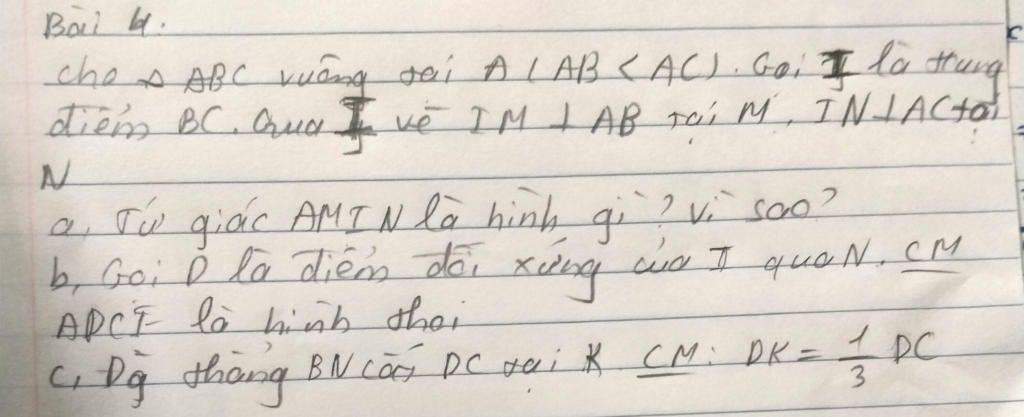 Bài 4.
cho △ ABC vuông tại A (AB < AC). Gọi I là trung
điểm BC. Qua I vẽ IM ⊥ AB tại M, IN ⊥ AC tại
N
a, Tứ giác AMIN là hình gì? Vì sao?
b, Gọi D là điểm đối xứng của I qua N. CM
ADCI là hình thoi
c, Đg thẳng BN cắt DC tại K CM: DK = 1/3 DC